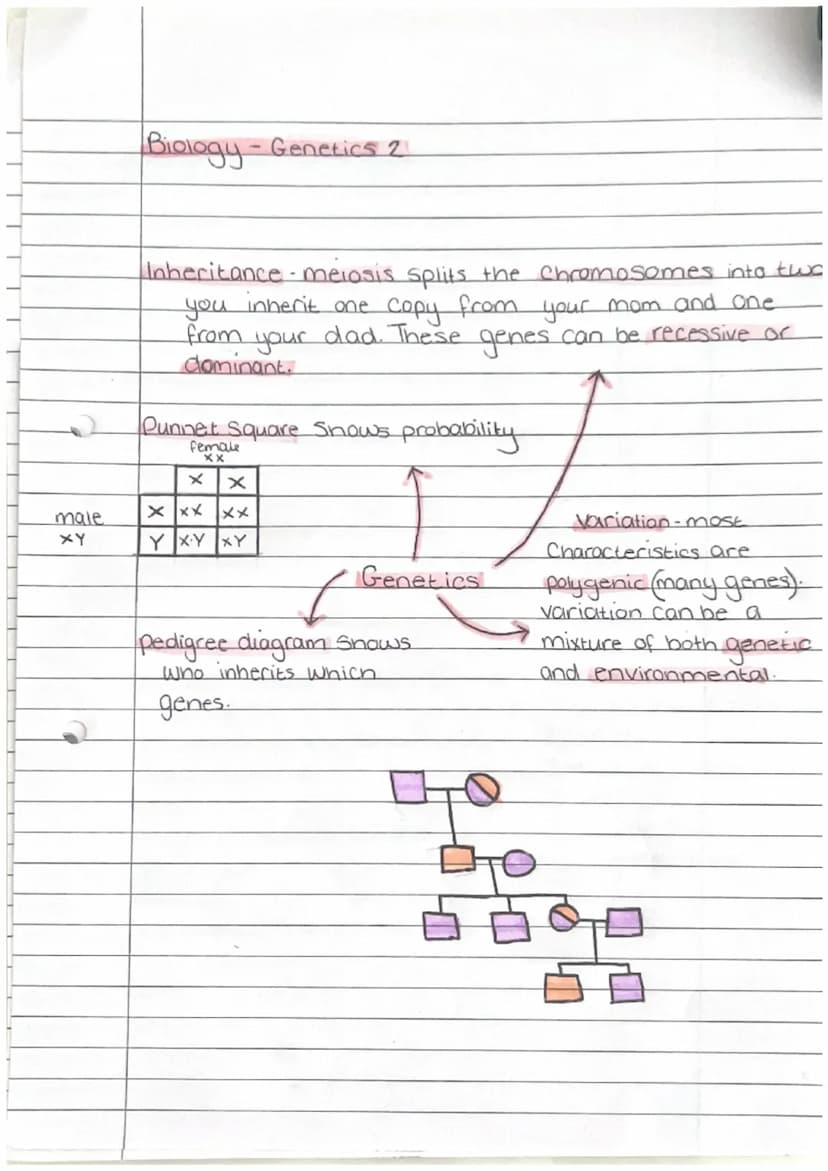 Biology - Genetics 2
Inheritance - meiosis splits the chromosomes into two
you inherit one copy from your mom and one
from your dad. These genes can be recessive or
dominant.
Punnet Square Shows probability
female
xx
X X
male
X XX XX
XY
Y X·Y XY
Variation - most
Characteristics are
polygenic (many genees).
variation can be a
mixture of both genetic
and environmental.
Genetics
pedigree diagram Shows
who inherits which
genes.